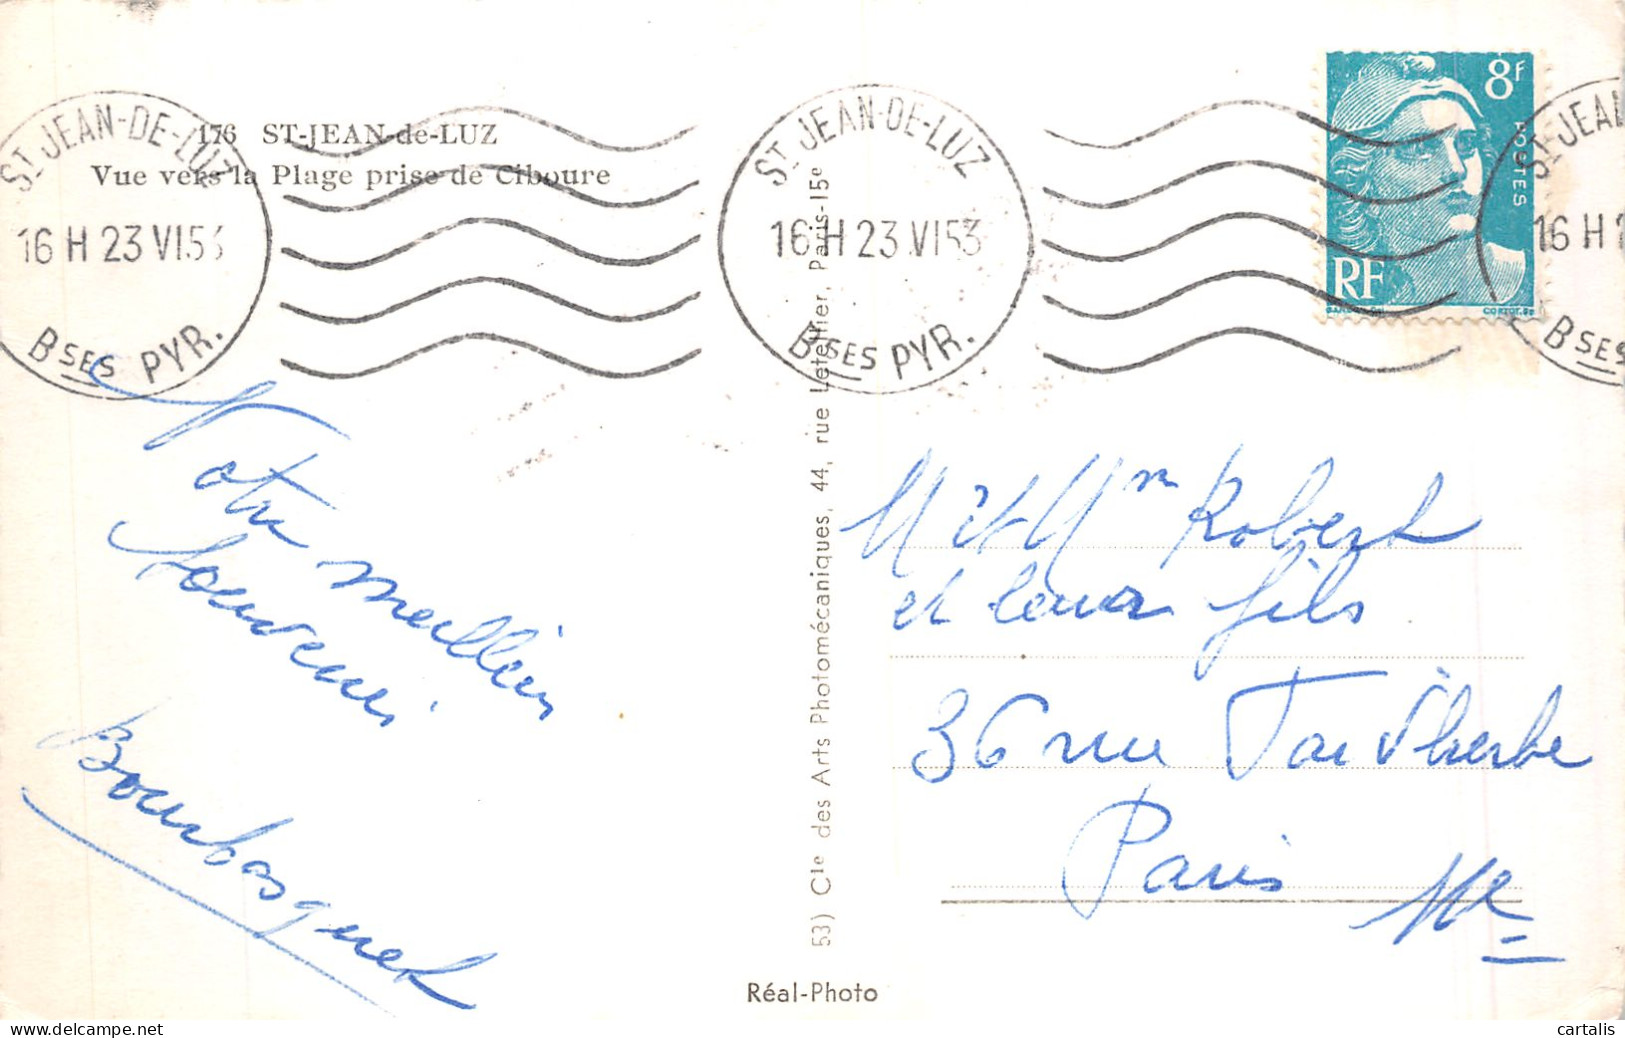 176 ST-JEAN-de-LUZ
Vue vers la Plage prise de Ciboure
ST JEAN-DE-LUZ
16 H 23 VI 53
BSES PYR.
ST JEAN-DE-LUZ
16 H 23 VI 53
BSES PYR.
8F
POSTES
RF
GANDON. DEL
CORTOT. SC
ST JEAN
16 H 2
BSES
Notre meilleur
souvenir
Bourbasquet
53) Cie des Arts Photomécaniques, 44, rue Letellier, Paris-15e
Réal-Photo
M et Mm Robert
et leur fils
36 rue
Paris
delcampe.net
cartalis